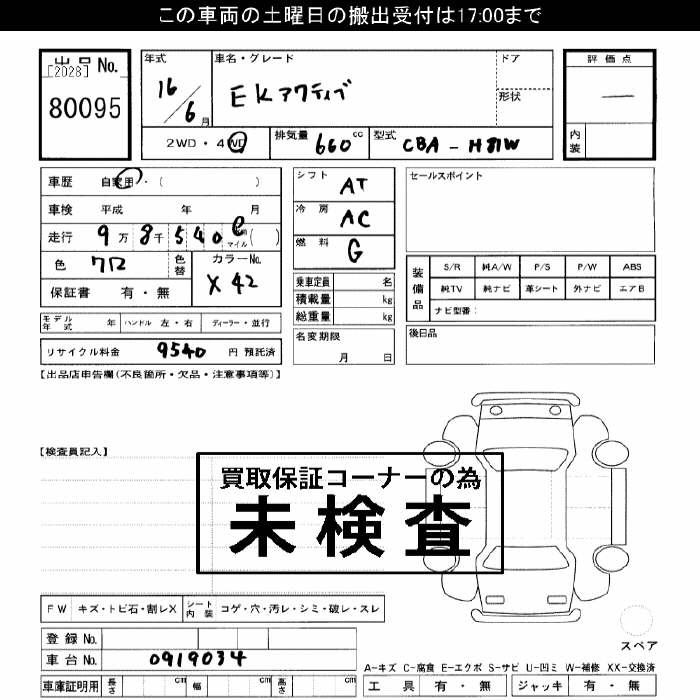 この車両の土曜日の搬出受付は17:00まで
出品 No.
[2028]
80095
年式 16/6月
車名・グレード EKアクティブ
ドア
形状
2WD・4WD 排気量 660 cc 型式 CBA - H81W
評価点
―
内装
車歴 自家用・( )
車検 平成 年 月
走行 9万8千540 マイル( )
色 クロ 色替 カラーNo. X42
保証書 有・無
シフト AT
冷房 AC
燃料 G
乗車定員 名
積載量 kg
総重量 kg
名変期限
月 日
セールスポイント
装備品
S/R 純A/W P/S P/W ABS
純TV 純ナビ 革シート 外ナビ エアB
ナビ型番:
後日品
モデル年式 年 ハンドル 左・右 ディーラー・並行
リサイクル料金 9540 円 預託済
【出品店申告欄(不良箇所・欠品・注意事項等)】
【検査員記入】
買取保証コーナーの為
未検査
FW キズ・トビ石・割レX シート内装 コゲ・穴・汚レ・シミ・破レ・スレ
登録 No.
車台 No. 0919034
車庫証明用 長さ cm 幅 cm 高さ cm
スペア
A-キズ C-腐食 E-エクボ S-サビ U-凹ミ W-補修 XX-交換済
工具 有・無 ジャッキ 有・無